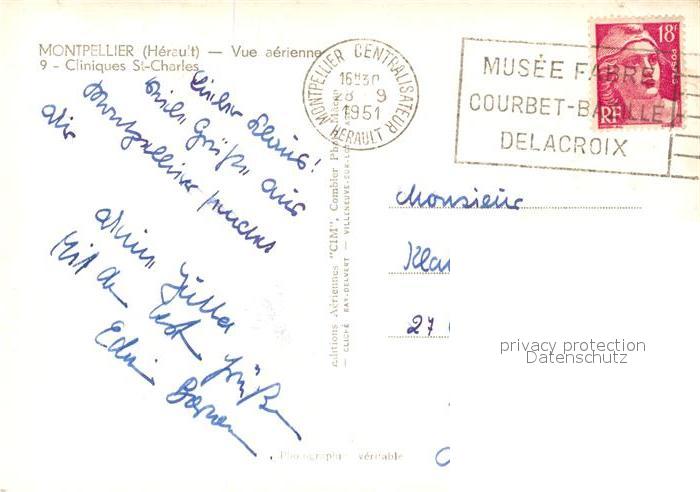 MONTPELLIER (Hérault) — Vue aérienne
9 - Cliniques St-Charles
Lieber Klaus!
viele Grüße aus
Montpellier sendet
dir
Mit den best. Grüßen
Edwin
MONTPELLIER CENTRALISATEUR
16H30
8 - 9
1951
HERAULT
MUSÉE FABRE
COURBET-BAZILLE
DELACROIX
18F
POSTES
RF
Editions Aériennes "CIM", Combier
CLICHÉ RAY-DELVERT — VILLENEUVE-SUR-LOT
Monsieur
Klau
27
privacy protection
Datenschutz
Photographie véritable